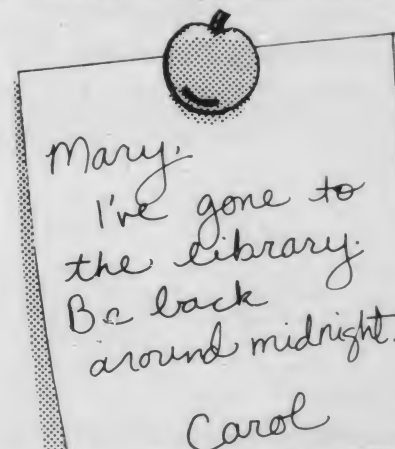 Mary,
I've gone to
the library.
Be back
around midnight.
Carol